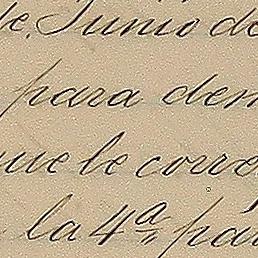 de Junio de
para dem
que le corre
la 4ª pá